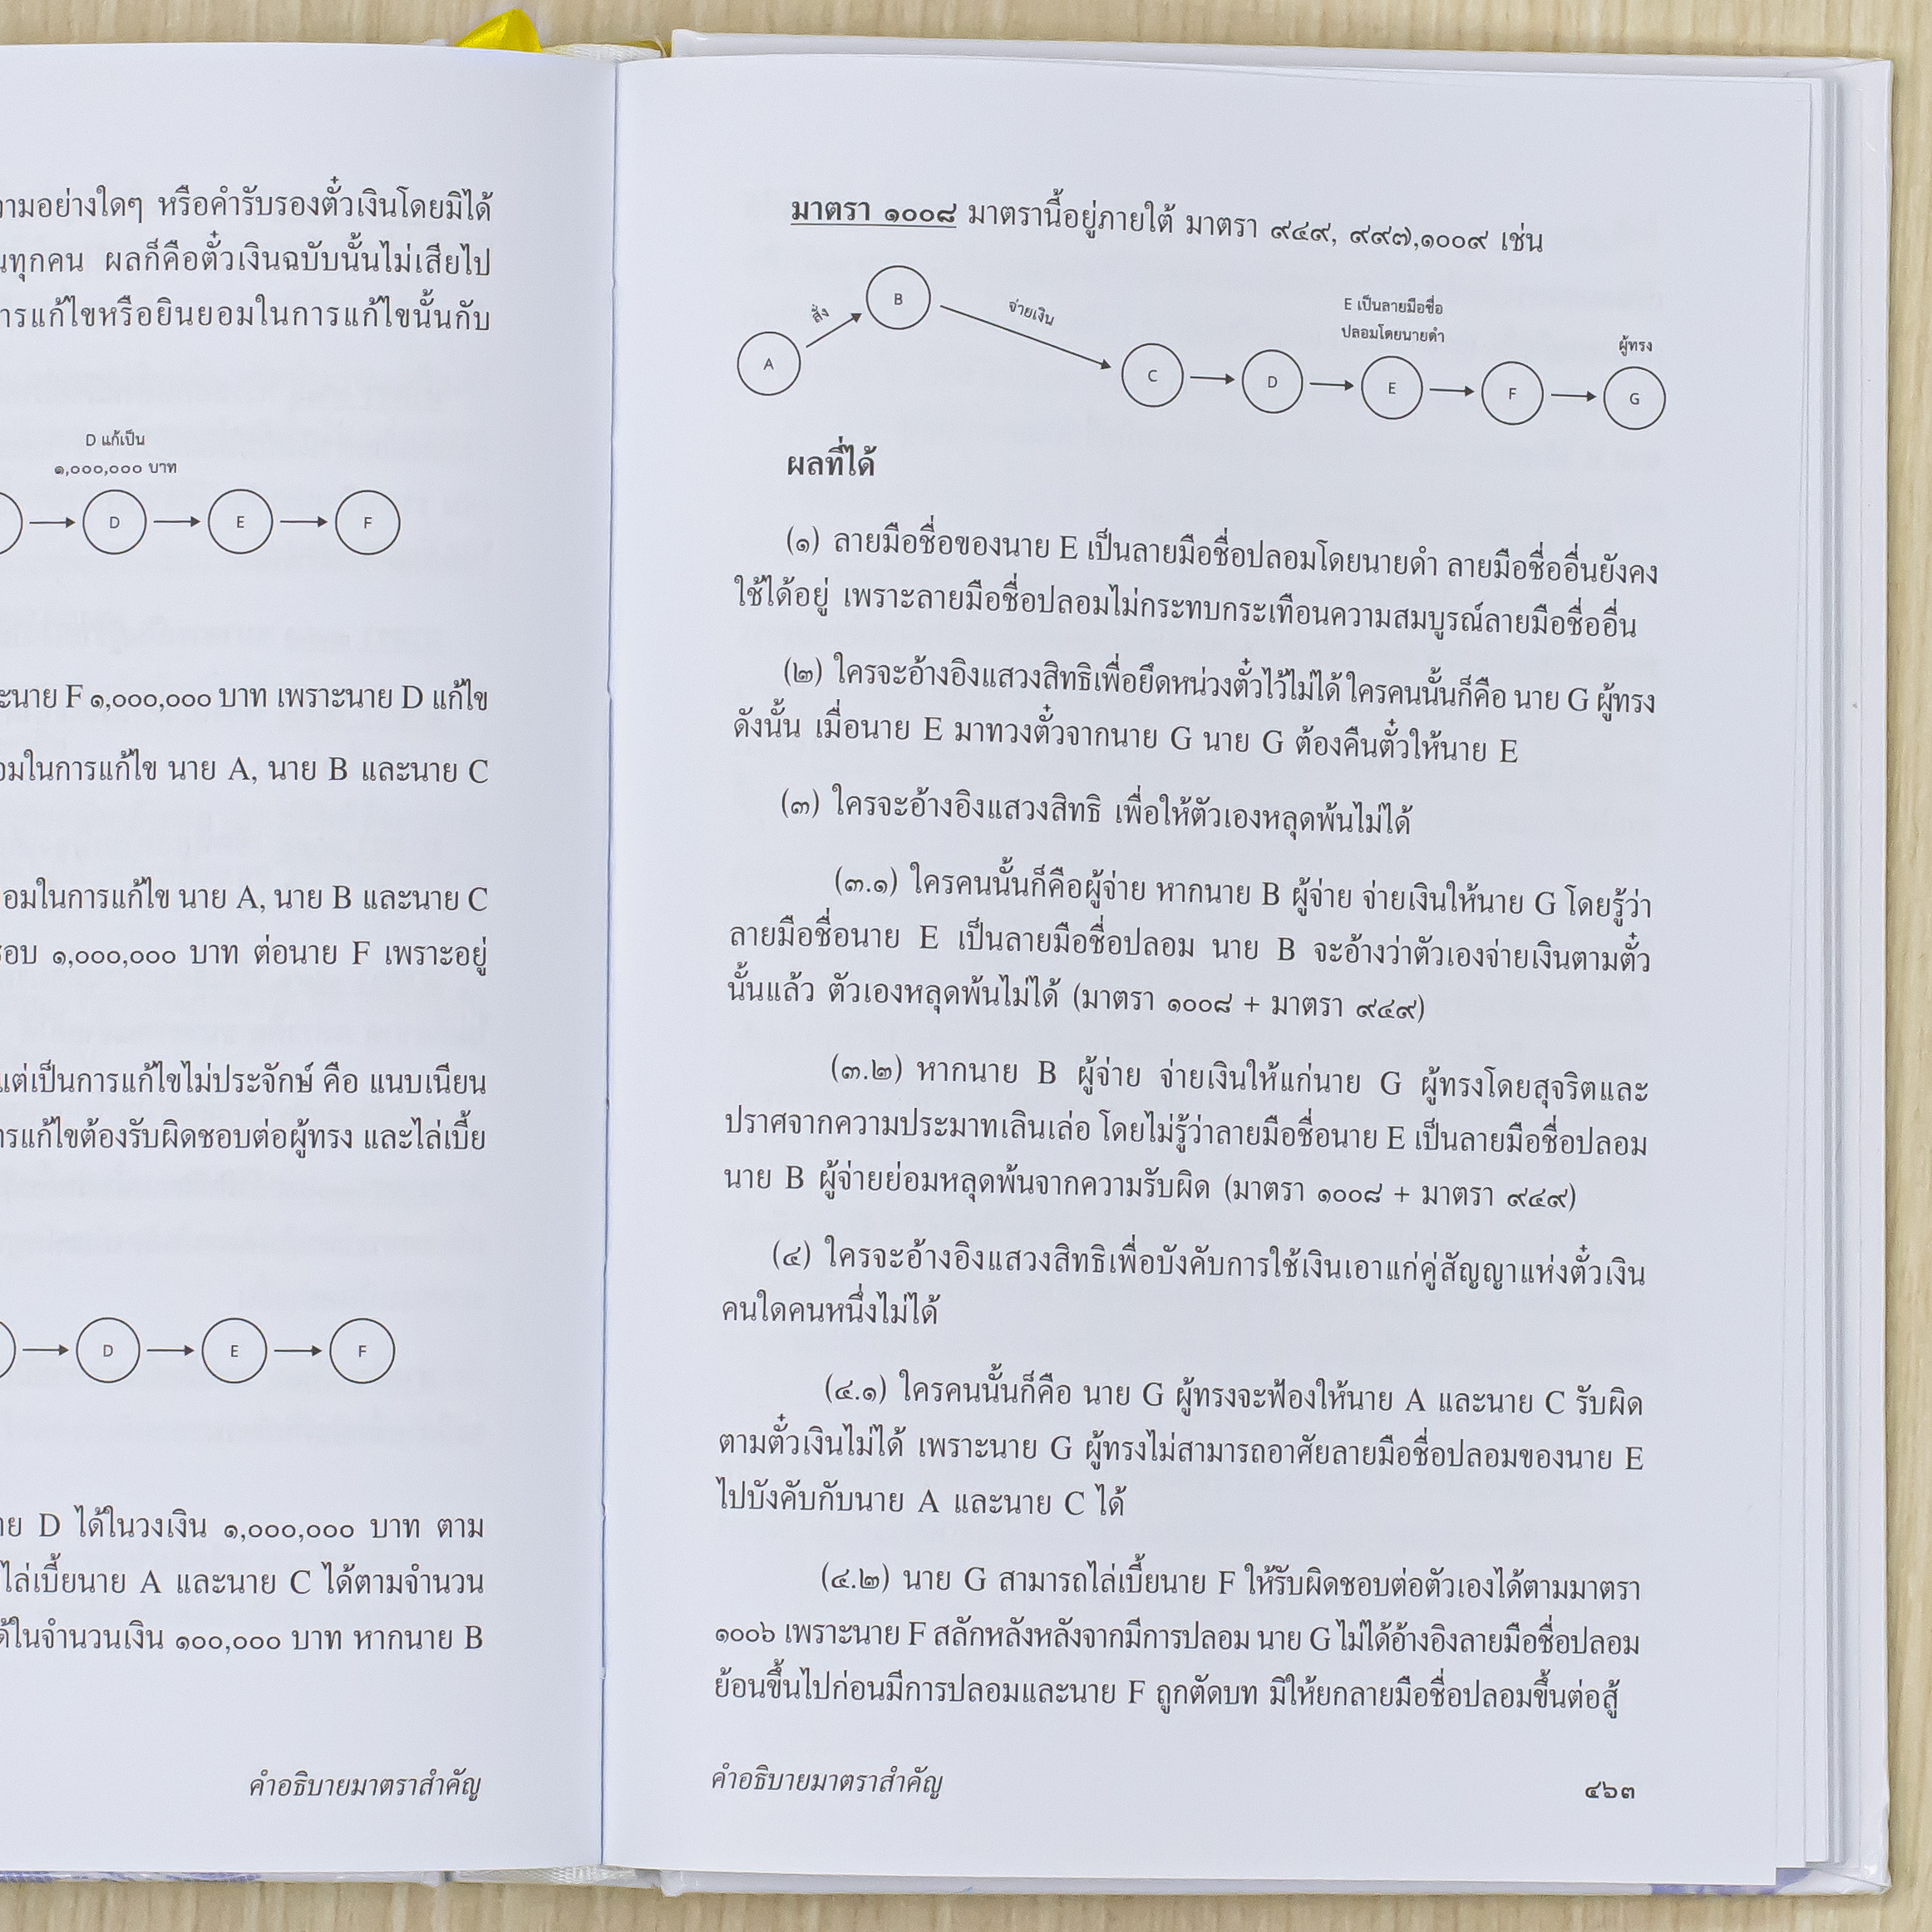 หรือคำรับรองตั๋วเงินโดยมิได้
ผลก็คือตั๋วเงินฉบับนั้นไม่เสียไป
D แก้เป็น
๑,๐๐๐,๐๐๐ บาท
D E F
F ๑,๐๐๐,๐๐๐ บาท เพราะนาย D แก้ไข
ในการแก้ไข นาย A, นาย B และนาย C
ในการแก้ไข นาย A, นาย B และนาย C
๑,๐๐๐,๐๐๐ บาท ต่อนาย F เพราะอยู่
แต่เป็นการแก้ไขไม่ประจักษ์ คือ แนบเนียน
แก้ไขต้องรับผิดชอบต่อผู้ทรง และไล่เบี้ย
D E F
D ได้ในวงเงิน ๑,๐๐๐,๐๐๐ บาท ตาม
ไล่เบี้ยนาย A และนาย C ได้ตามจำนวน
ในจำนวนเงิน ๑๐๐,๐๐๐ บาท หากนาย B
คำอธิบายมาตราสำคัญ
มาตรา ๑๐๐๘ มาตรานี้อยู่ภายใต้ มาตรา ๙๔๙, ๙๙๗,๑๐๐๙ เช่น
A สั่ง B จ่ายเงิน C D E F G
E เป็นลายมือชื่อ
ปลอมโดยนายดำ
ผู้ทรง
ผลที่ได้
(๑) ลายมือชื่อของนาย E เป็นลายมือชื่อปลอมโดยนายดำ ลายมือชื่ออื่นยังคง
ใช้ได้อยู่ เพราะลายมือชื่อปลอมไม่กระทบกระเทือนความสมบูรณ์ลายมือชื่ออื่น
(๒) ใครจะอ้างอิงแสวงสิทธิเพื่อยึดหน่วงตั๋วไว้ไม่ได้ ใครคนนั้นก็คือ นาย G ผู้ทรง
ดังนั้น เมื่อนาย E มาทวงตั๋วจากนาย G นาย G ต้องคืนตั๋วให้นาย E
(๓) ใครจะอ้างอิงแสวงสิทธิ เพื่อให้ตัวเองหลุดพ้นไม่ได้
(๓.๑) ใครคนนั้นก็คือผู้จ่าย หากนาย B ผู้จ่าย จ่ายเงินให้นาย G โดยรู้ว่า
ลายมือชื่อนาย E เป็นลายมือชื่อปลอม นาย B จะอ้างว่าตัวเองจ่ายเงินตามตั๋ว
นั้นแล้ว ตัวเองหลุดพ้นไม่ได้ (มาตรา ๑๐๐๘ + มาตรา ๙๔๙)
(๓.๒) หากนาย B ผู้จ่าย จ่ายเงินให้แก่นาย G ผู้ทรงโดยสุจริตและ
ปราศจากความประมาทเลินเล่อ โดยไม่รู้ว่าลายมือชื่อนาย E เป็นลายมือชื่อปลอม
นาย B ผู้จ่ายย่อมหลุดพ้นจากความรับผิด (มาตรา ๑๐๐๘ + มาตรา ๙๔๙)
(๔) ใครจะอ้างอิงแสวงสิทธิเพื่อบังคับการใช้เงินเอาแก่คู่สัญญาแห่งตั๋วเงิน
คนใดคนหนึ่งไม่ได้
(๔.๑) ใครคนนั้นก็คือ นาย G ผู้ทรงจะฟ้องให้นาย A และนาย C รับผิด
ตามตั๋วเงินไม่ได้ เพราะนาย G ผู้ทรงไม่สามารถอาศัยลายมือชื่อปลอมของนาย E
ไปบังคับกับนาย A และนาย C ได้
(๔.๒) นาย G สามารถไล่เบี้ยนาย F ให้รับผิดชอบต่อตัวเองได้ตามมาตรา
๑๐๐๖ เพราะนาย F สลักหลังหลังจากมีการปลอม นาย G ไม่ได้อ้างอิงลายมือชื่อปลอม
ย้อนขึ้นไปก่อนมีการปลอมและนาย F ถูกตัดบท มิให้ยกลายมือชื่อปลอมขึ้นต่อสู้
คำอธิบายมาตราสำคัญ
๔๖๓